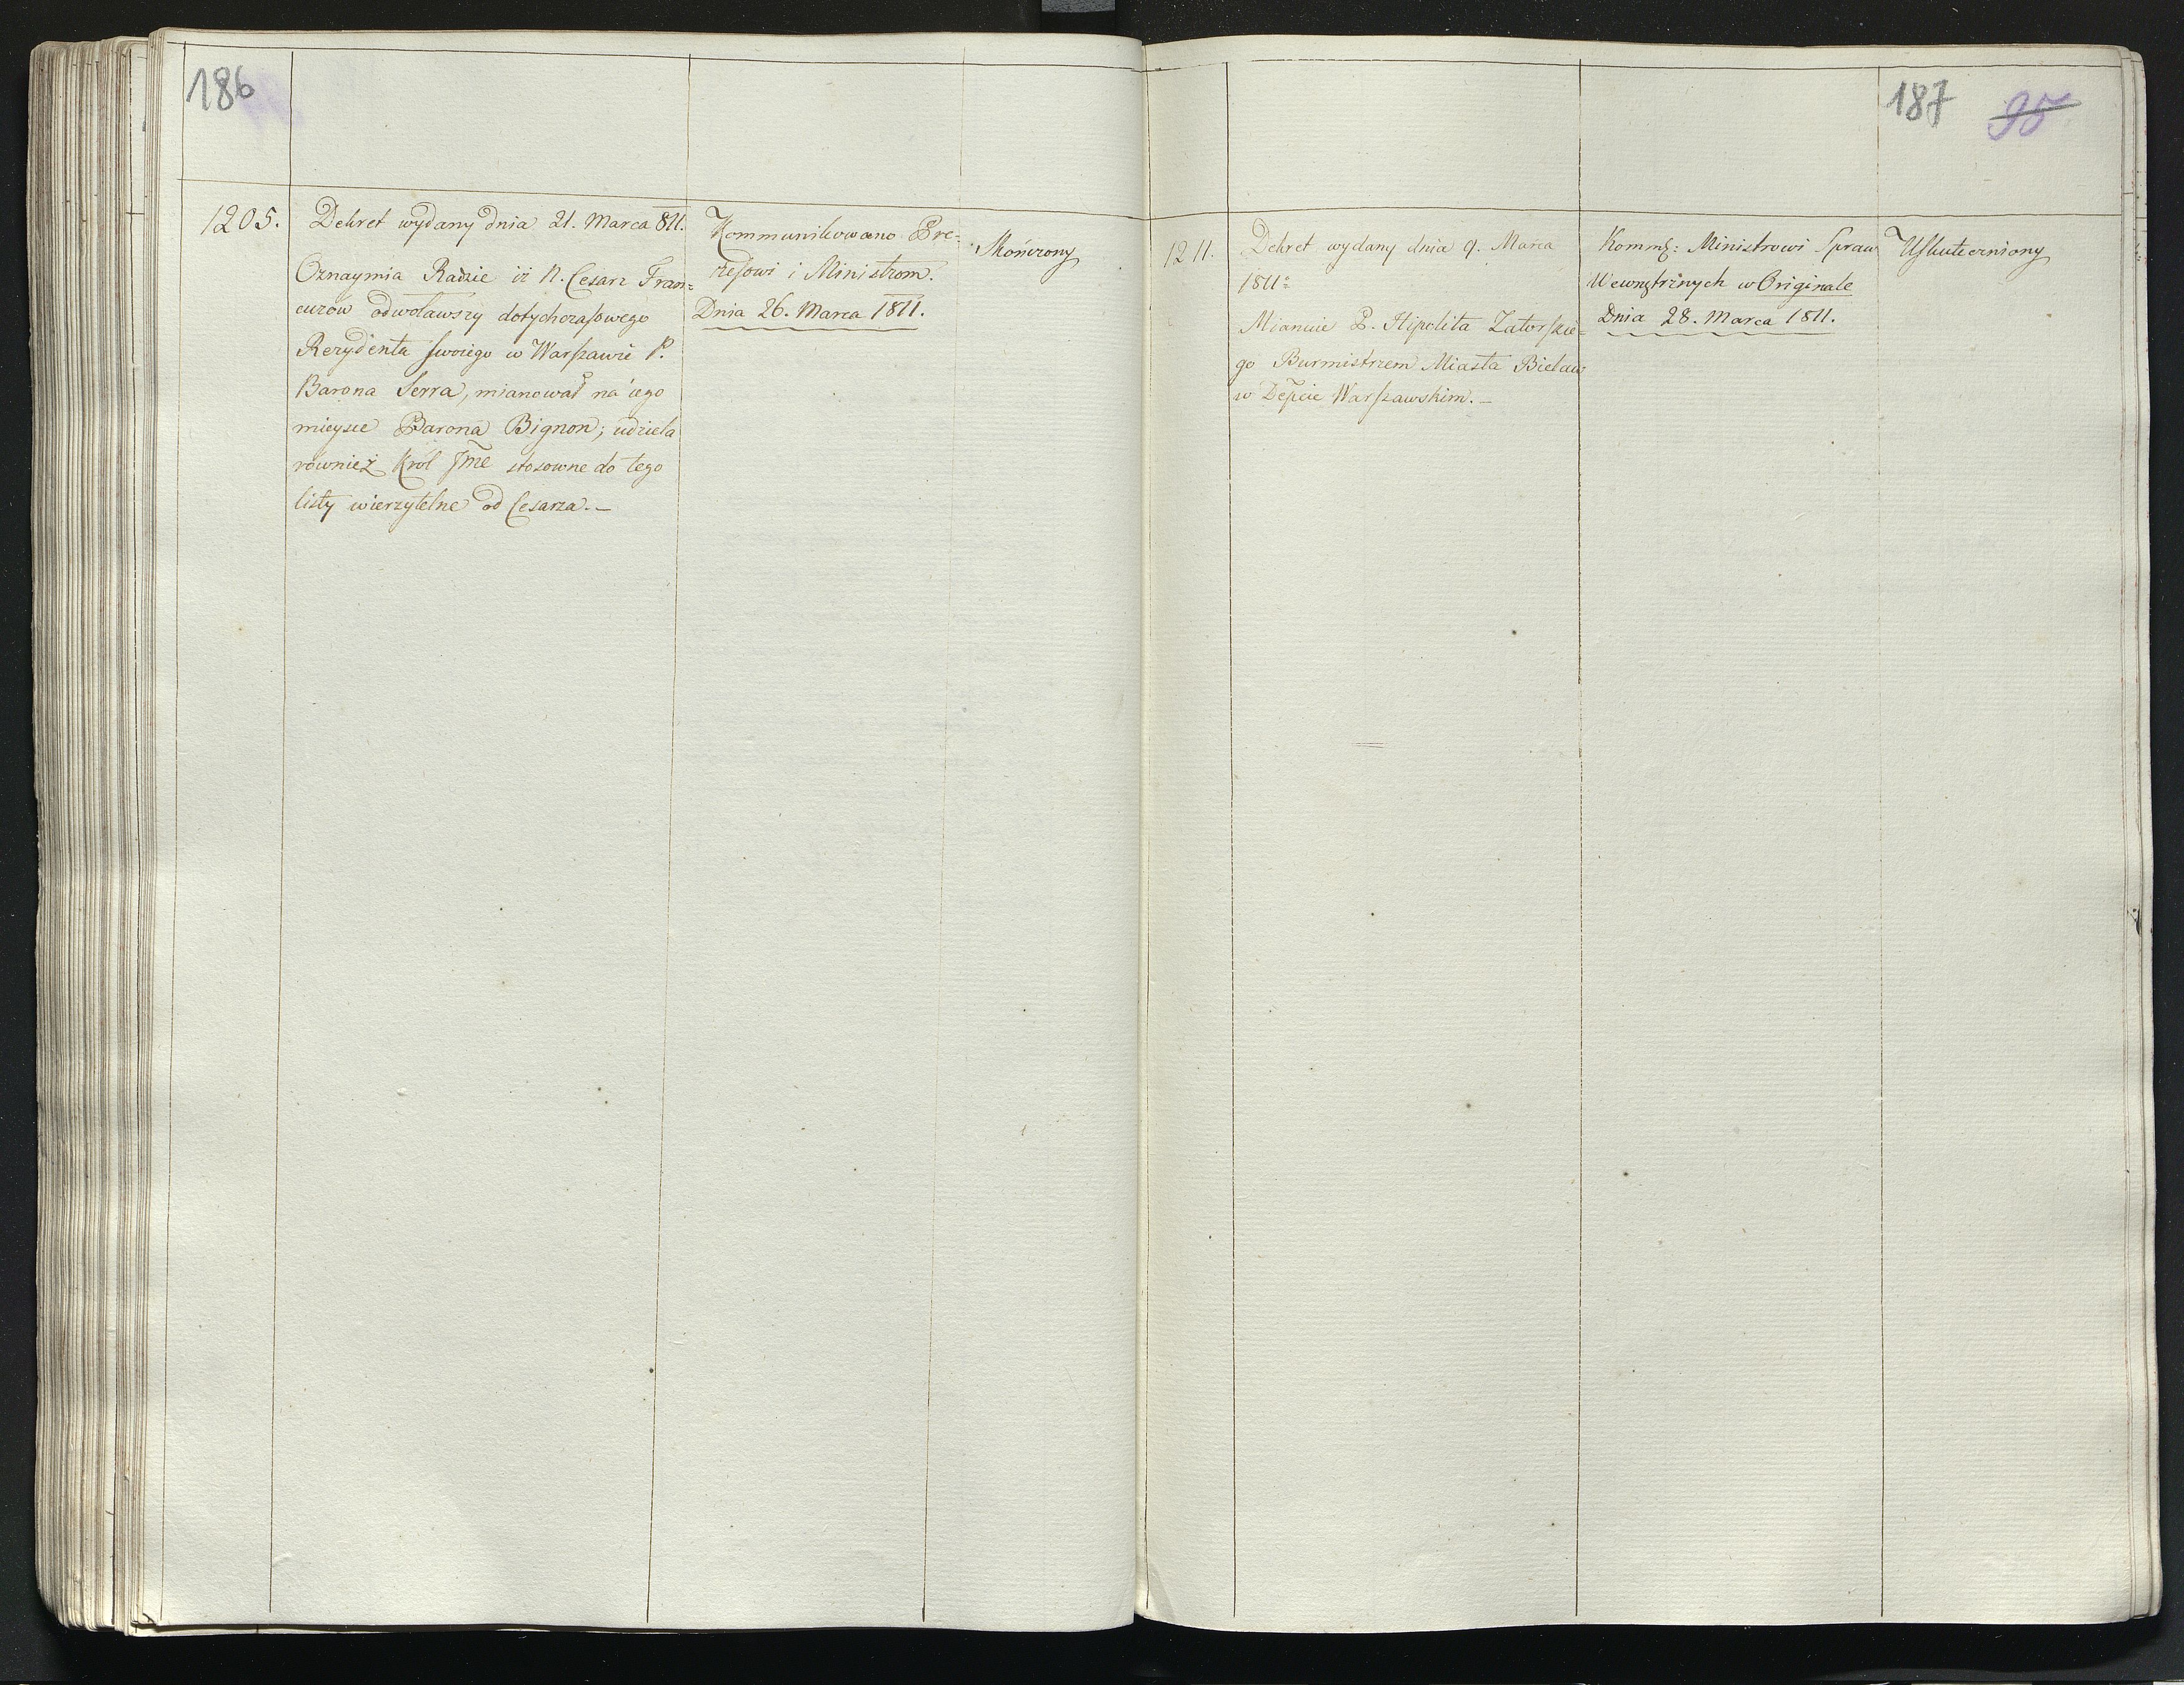 186
1205.
Dekret wydany dnia 21. Marca 811.
Oznaymia Radzie iż N. Cesarz Fran=
cuzów odwoławszy dotychczasowego
Rezydenta swoiego w Warszawie P.
Barona Serra, mianował na iego
mieysce Barona Bignon; udziela
również Król Jmć stosowne do tego
listy wierzytelne od Cesarza.—
Kommunikowano Pre=
zesowi i Ministrom.
Dnia 26. Marca 1811.
Skończony
187 95
1211.
Dekret wydany dnia 9. Marca
1811o
Mianuie P. Hipolita Zatorskie=
go Burmistrzem Miasta Bielaw
w Depcie Warszawskim.—
Kommk: Ministrowi Spraw
Wewnętrznych w Originale
Dnia 28. Marca 1811.
Uskuteczniony